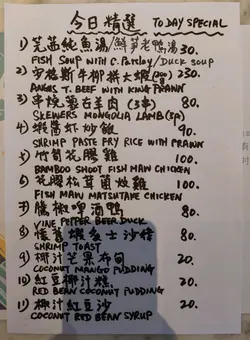 今日精選 TO DAY SPECIAL
1) 芫茜魚湯/鮮筍老鴨湯 30.
FISH SOUP WITH C. Parsley/DUCK SOUP
2) 安格斯牛柳拼大蝦 230.
ANGUS T. BEEF WITH KING PRAWN
3) 串燒蒙古羊肉 (3串) 80.
SKEWERS MONGOLIA LAMB (3P)
4) 蝦醬蝦炒飯 90.
SHRIMP PASTE FRY RICE WITH PRAWN
5) 竹筍花膠雞 100.
BAMBOO SHOOT FISH MAW CHICKEN
6) 花膠松茸菌炆雞 100.
FISH MAW MATSUTAKE CHICKEN
7) 騰椒啤酒鴨 80.
VINE PEPPER BEER DUCK
8) 懷舊蝦多士沙律 80.
SHRIMP TOAST
9) 椰汁芒果布甸 20.
COCONUT MANGO PUDDING
10) 紅豆椰汁糕 20.
RED BEAN COCONUT PUDDING
11) 椰汁紅豆沙 20.
COCONUT RED BEAN SYRUP